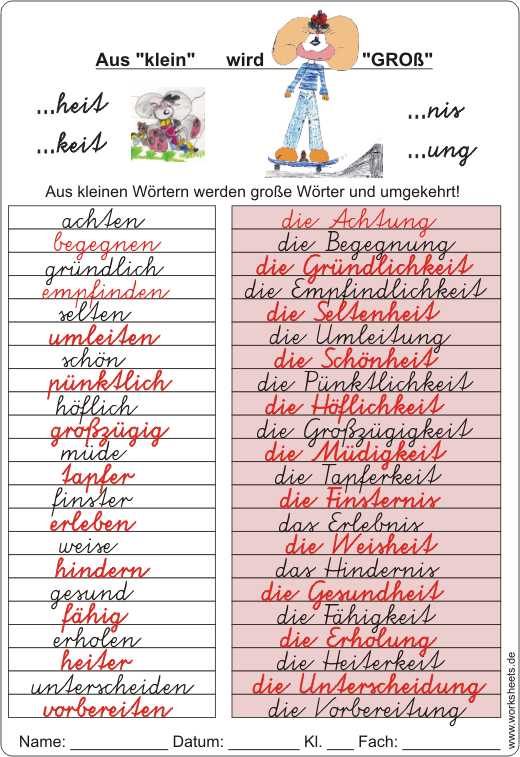 Aus "klein" wird "GROß"
...heit
...keit
...nis
...ung
Aus kleinen Wörtern werden große Wörter und umgekehrt!
achten die Achtung
begegnen die Begegnung
gründlich die Gründlichkeit
empfinden die Empfindlichkeit
selten die Seltenheit
umleiten die Umleitung
schön die Schönheit
pünktlich die Pünktlichkeit
höflich die Höflichkeit
großzügig die Großzügigkeit
müde die Müdigkeit
tapfer die Tapferkeit
finster die Finsternis
erleben das Erlebnis
weise die Weisheit
hindern das Hindernis
gesund die Gesundheit
fähig die Fähigkeit
erholen die Erholung
heiter die Heiterkeit
unterscheiden die Unterscheidung
vorbereiten die Vorbereitung
Name: ___________ Datum: ________ Kl. ___ Fach: ___________
www.worksheets.de